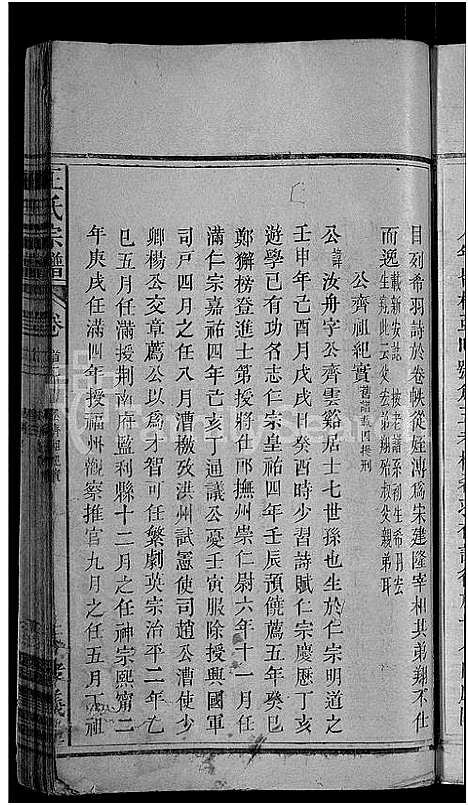 目列希羽詩於卷帙從姪溥為宋建隆宰相其弟翔不仕
而逸載新安誌 按老譜系初生希羽宏
肇翔此云從弟翔殆叔父翔弟耳
公齊祖紀實舊譜載四提刑
公諱汝舟字公齊雲谿居士七世孫也生於仁宗明道之
壬申年己酉月戊戌日癸酉時少習詩賦仁宗慶曆丁亥
遊學已有功名志仁宗皇祐四年壬辰預僊薦五年癸巳
鄭獬榜登進士第授將仕郎撫州崇仁尉六年十一月任
滿仁宗嘉祐四年己亥丁通議公憂壬寅服除授興國軍
司戶四月之任八月漕檄攷洪州試憲使司趙公漕使少
卿楊公交章薦公以為才智可任繁劇英宗治平二年乙
巳五月任滿授荆南府監利縣十二月之任神宗熙甯二
年庚戌任滿四年授福州觀察推官九月之任五月丁祖
王氏宗譜
卷